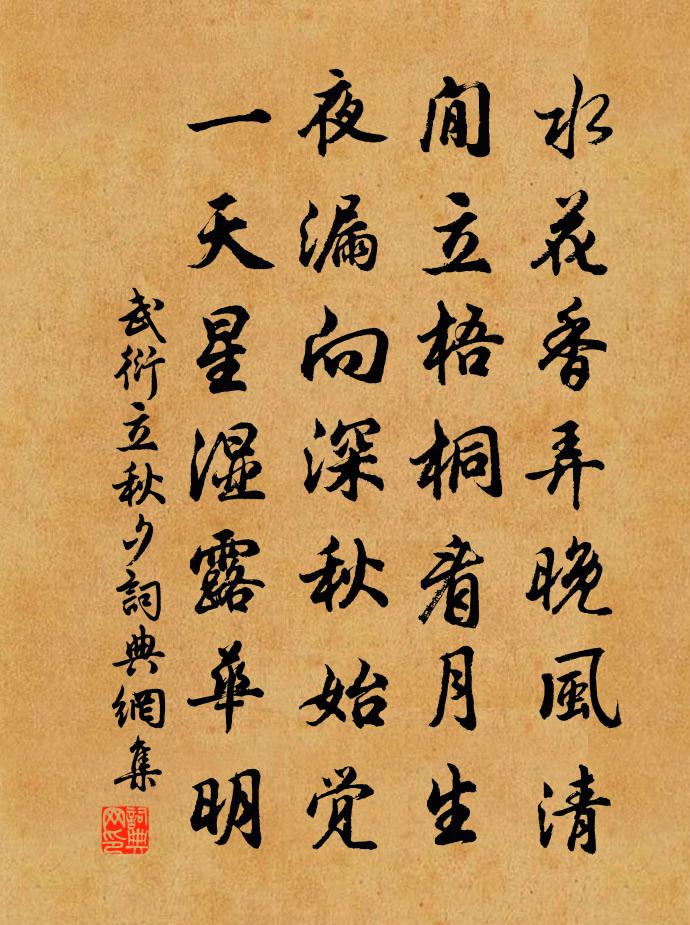 水花香弄晚風清
閒立梧桐看月生
夜漏向深秋始觉
一天星湿露華明
武衍立秋夕詞典網集
詞典網印